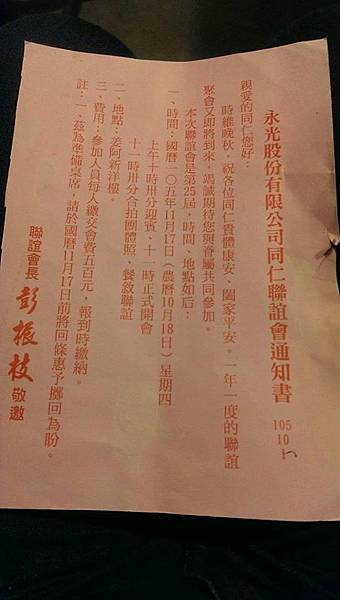 永光股份有限公司同仁聯誼會通知書
105
10
親愛的同仁您好：
時維晚秋，祝各位同仁貴體康安、闔家平安。一年一度的聯誼
聚會又即將到來，竭誠期待您與眷屬共同參加。
本次聯誼會是第25屆，時間、地點如后：
一、時間：國曆一○五年11月17日（農曆10月18日）星期四
上午十時卅分迎賓、十一時正式開會
十一時卅分合拍團體照、餐敘聯誼
二、地點：姜阿新洋樓。
三、費用：參加人員每人繳交會費五百元，報到時繳納。
註：一、茲為準備桌席，請於國曆11月17日前將回條惠予擲回為盼。
聯誼會長 彭振枝 敬邀